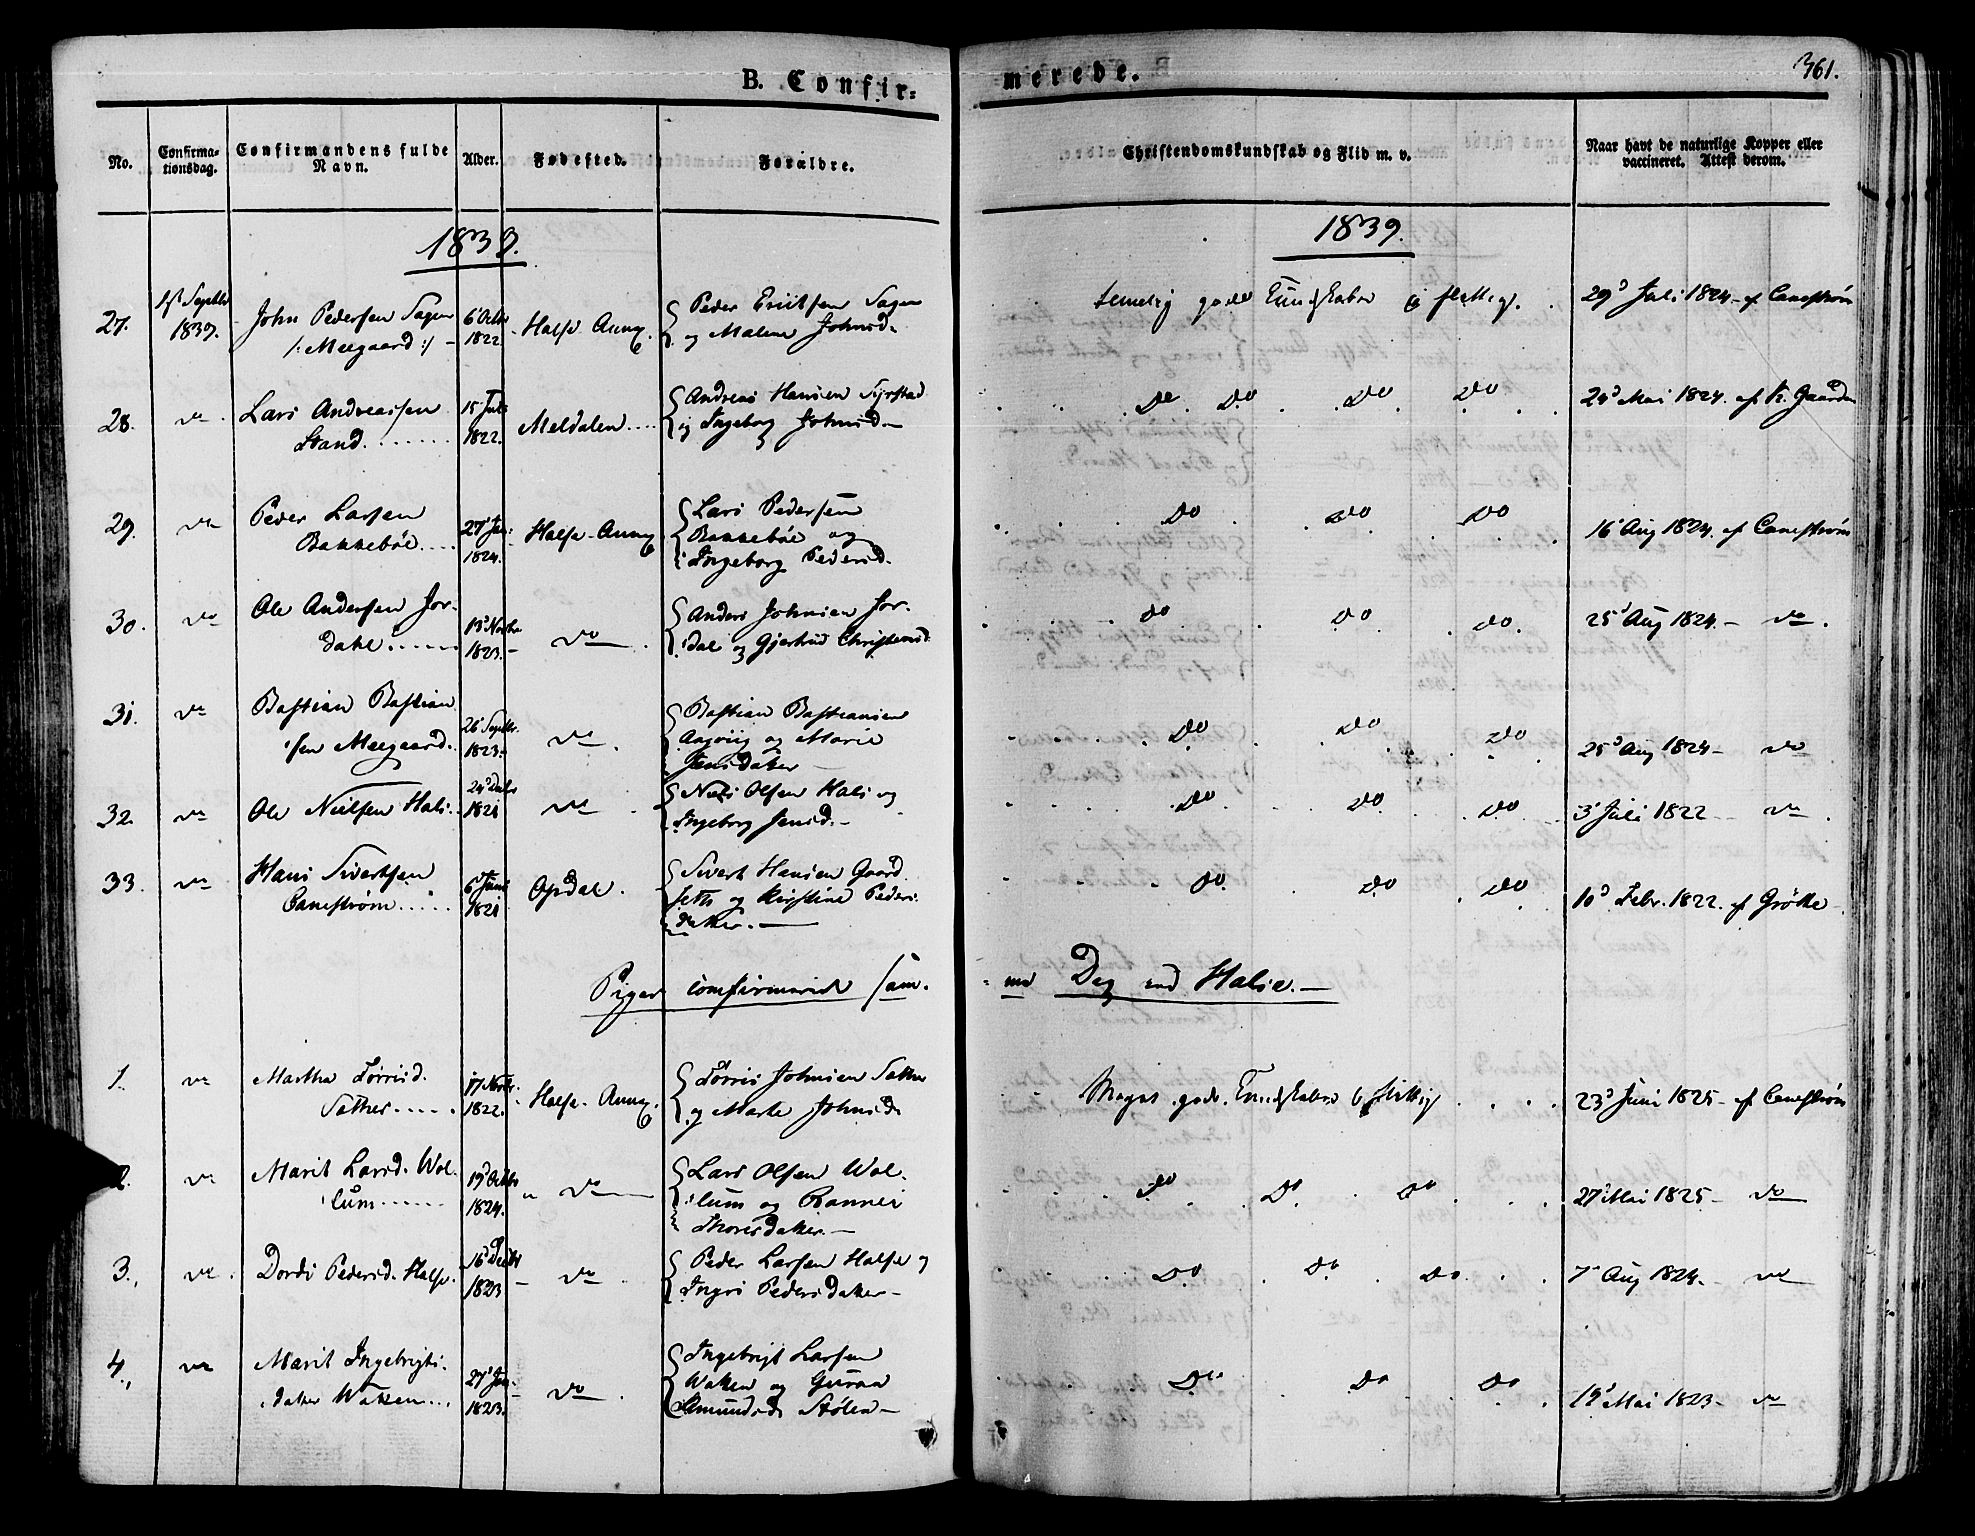 361.
B. Confir= merede.
No. Confirma= tionsdag. Confirmandens fulde Navn. Alder. Fødested. Forældre. Christendomskundskab og Flid m. v. Naar havt de naturlige Kopper eller vaccineret. Attest derom.
1839. 1839.
27. Septbr 1839. John Pedersen Sagen 6 Octbr Halse Annex. Peder Erichsen Sagen temelig gode Kundskaber og flittig. 29d Juli 1824 - af Canestrøm
/: Meegaard :/ 1822 og Malene Johnsd.
28. do Lars Andreassen 15 Juli Meldalen Andreas Hansen Syrstad Do Do Do Do 24d Mai 1824. af K. Gaarden
Stand. 1822. og Ingeborg Johnsd.
29. do Peder Larsen 27d Jan: Halse Annex Lars Pedersen Do Do Do 16 Aug 1824. af Canestrøm
Bakkebøe 1824. Bakkebøe og
Ingeborg Pedersd.
30. do Ole Andersen Jor- 13d Novbr do Anders Johnsen Jor- Do Do Do. 25d Aug 1824. - do.
dahl 1823. dal og Gjertrud Christensd.
31. do Bastian Bastian 26d Septbr. do Bastian Bastiansen Do Do Do 25d Aug 1824 - do
sen Meegaard. 1823. Aasviig og Marie
Jensdatter
32. do Ole Nielsen Hals. 24d Decbr 1821 do Niels Olsen Hals og Do Do Do 3d Juli 1822 do.
Ingeborg Jensd.
33. do Hans Sivertsen 6d Juni Opdal. Sivert Hansen Gaard Do Do Do 10d Febr. 1822. af Grøtte
Canestrøm 1821 seth og Kirstine Peders
datter.
Piger confirmerede sam- me Dag ved Halse.
1. do Martha Tørrisd. 17 Novbr. Halse Annex. Tørris Johnsen Sæther Meget gode Kundskaber og flittig 23d Juni 1825 - af Canestrøm
Sæther 1822. og Marte Johnsd.
2. do Marit Larsd. Wol- 19d Octbr do Lars Olsen Wol- Do Do Do 27d Mai 1825 - do
lum 1824. lum og Rannei
Thoresdatter
3. do Dordi Pedersd. Halse. 16d Decbr do Peder Larsen Halse og Do Do Do 7d Aug 1824. - do
1823 Ingri Pedersdatter
4. do Marit Ingebrigts- 27d Jan. do Ingebrigt Larsen Do Do Do 19d Mai 1823 - do
datter Waken 1823. Waken og Guraa
Amundsd. Stølen